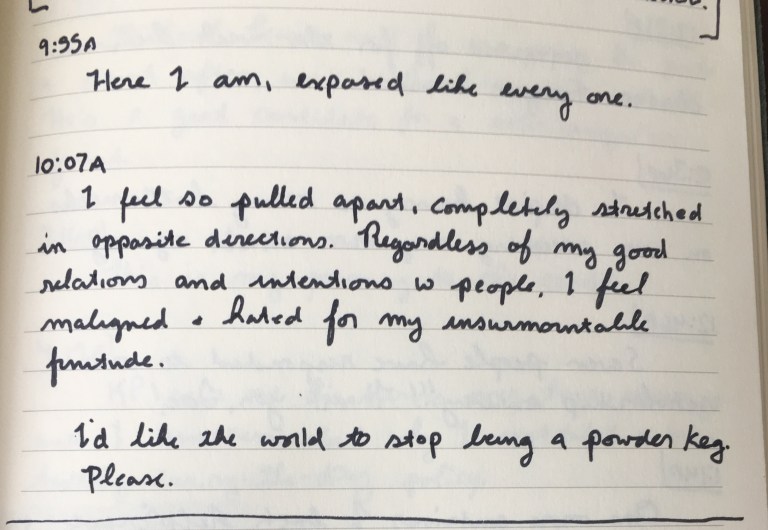 9:55A
Here I am, exposed like every one.
10:07A
I feel so pulled apart, completely stretched
in opposite directions. Regardless of my good
relations and intentions w people, I feel
maligned & hated for my insurmountable
finitude.
I'd like the world to stop being a powder keg.
Please.